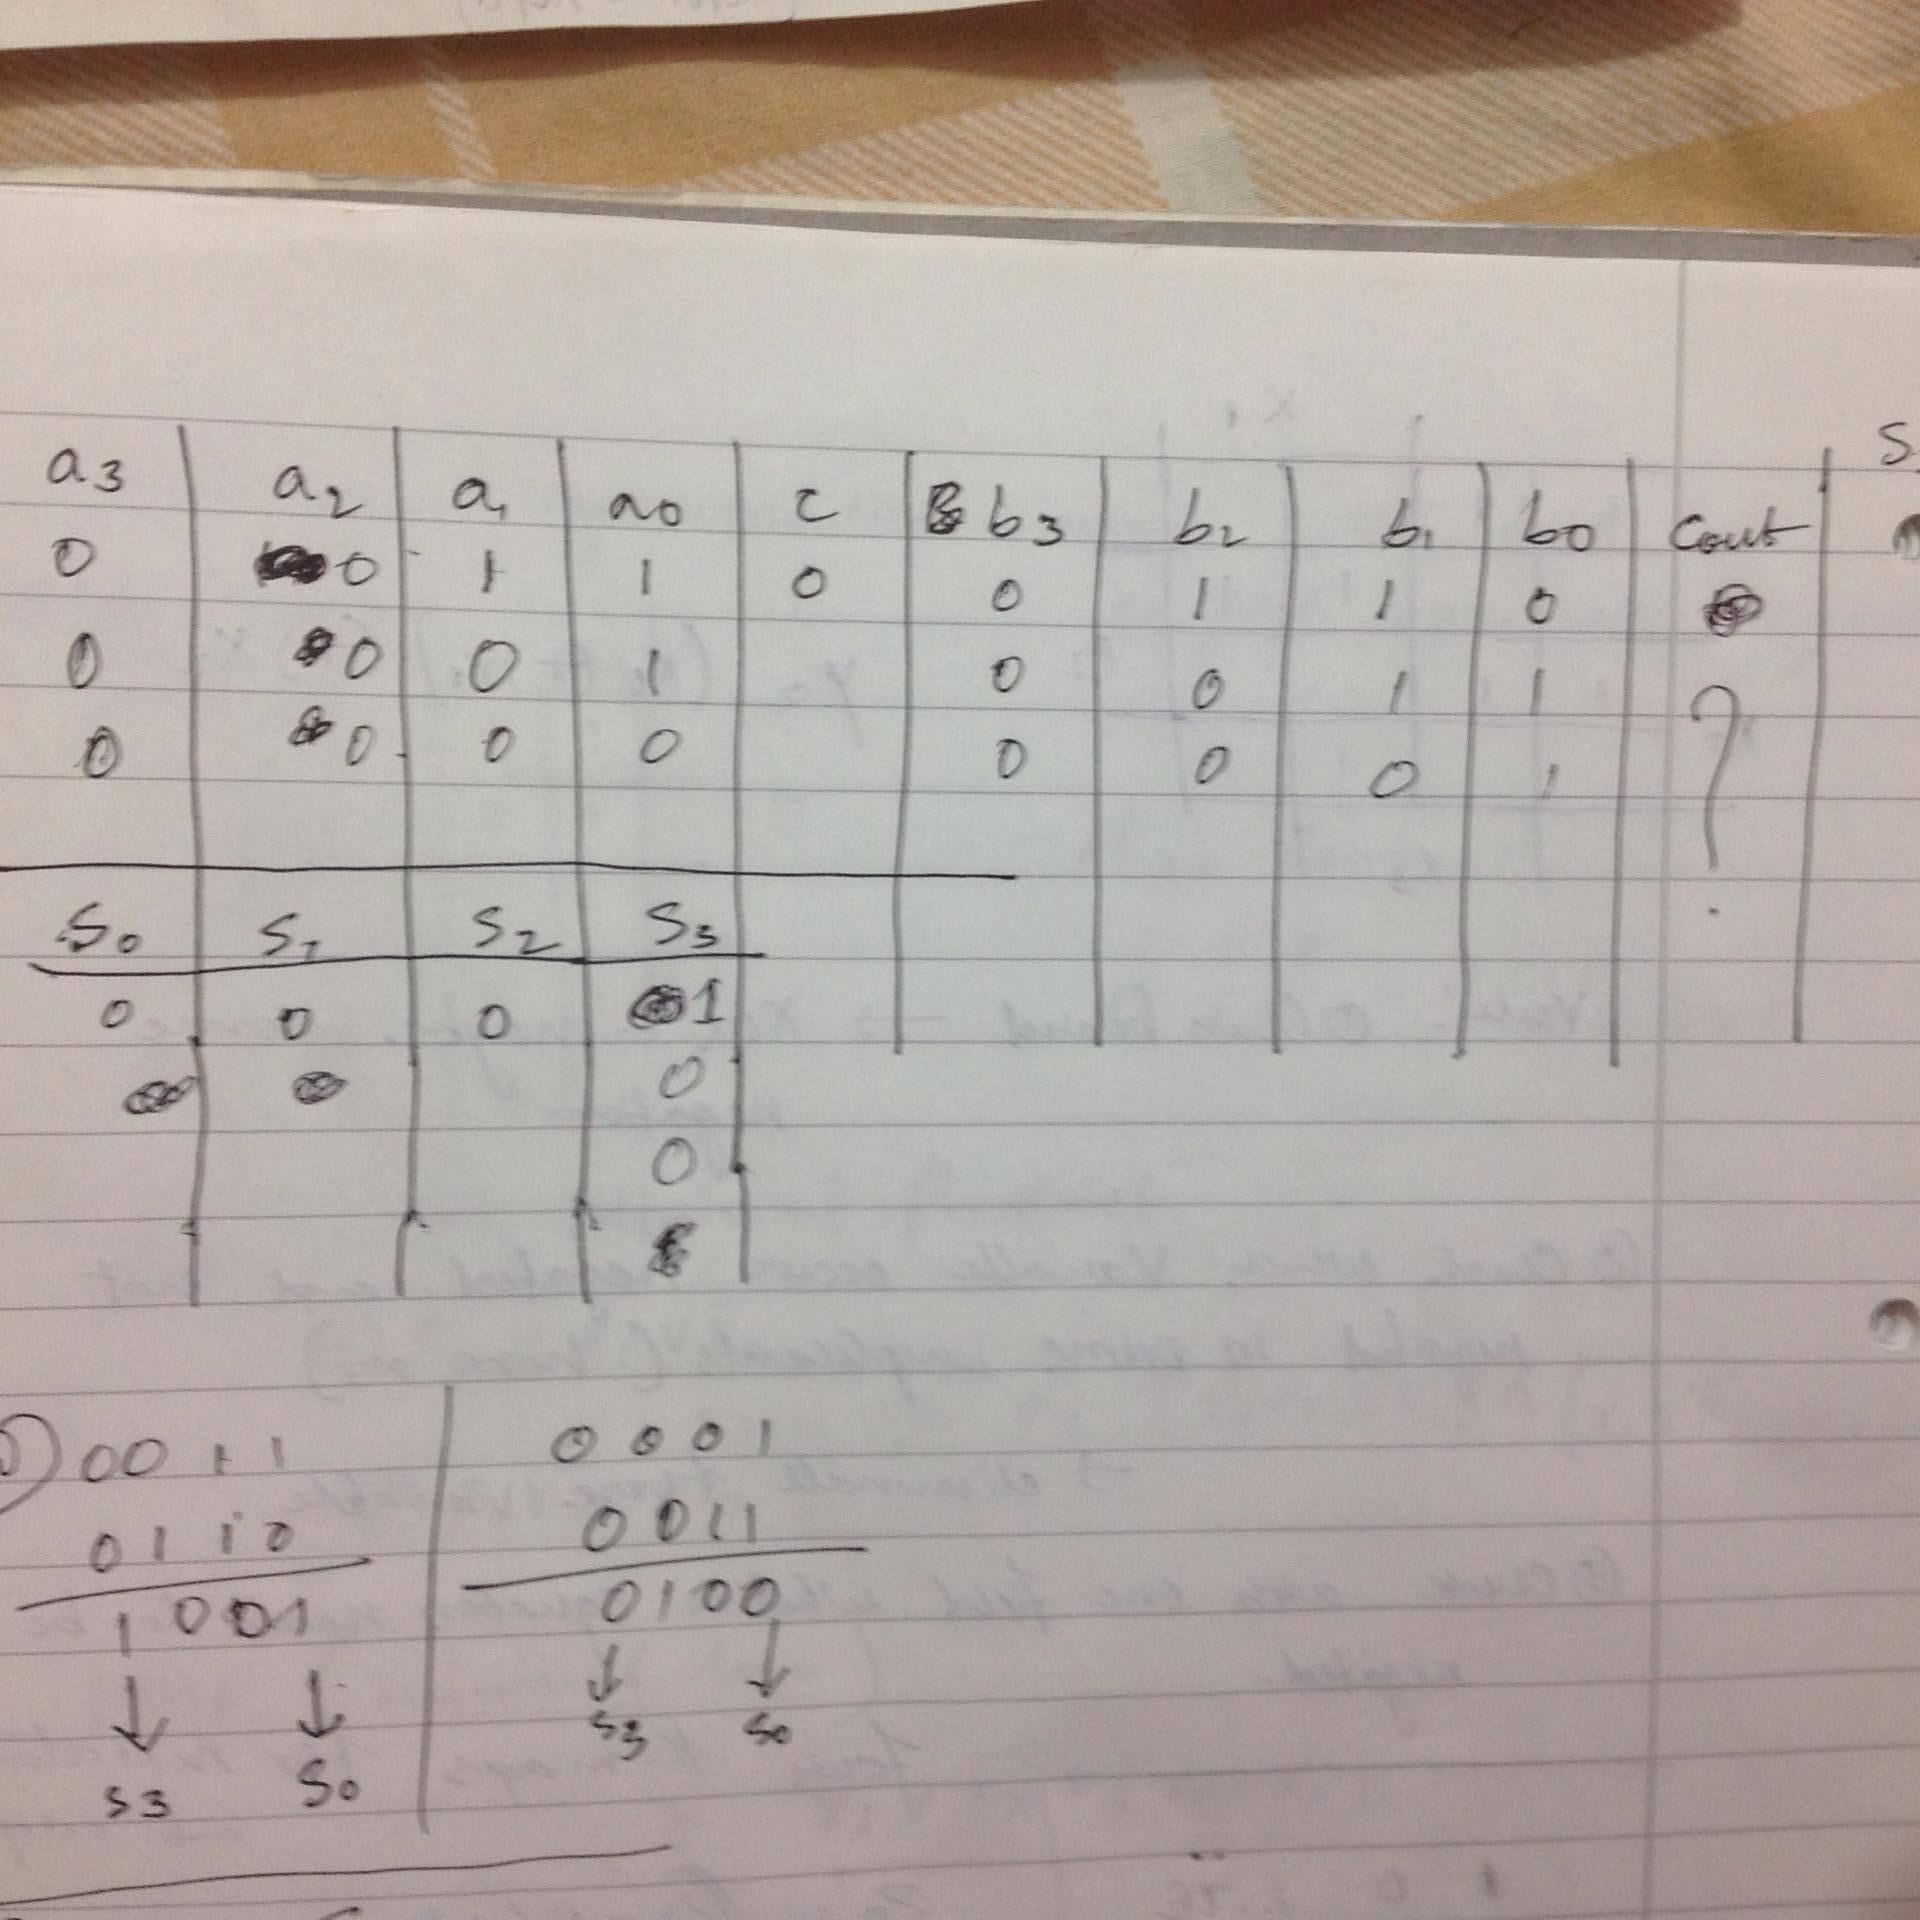 a3 a2 a1 a0 c b3 b2 b1 b0 Cout S
0 0 1 1 0 0 1 1 0
0 0 0 1 0 0 1 1 ?
0 0 0 0 0 0 0 1
S0 S1 S2 S3
0 0 0 1
0
0
0011 0001
0110 0011
1001 0100
↓ ↓ ↓ ↓
S3 S0 S3 S0